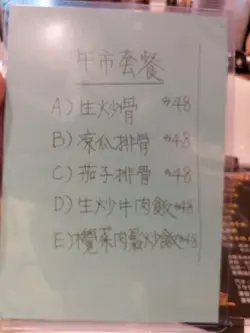 午市套餐
A) 生炒骨 $48
B) 凉瓜排骨 $48
C) 茄子排骨 $48
D) 生炒牛肉飯 $48
E) 欖菜肉鬆炒飯 $48